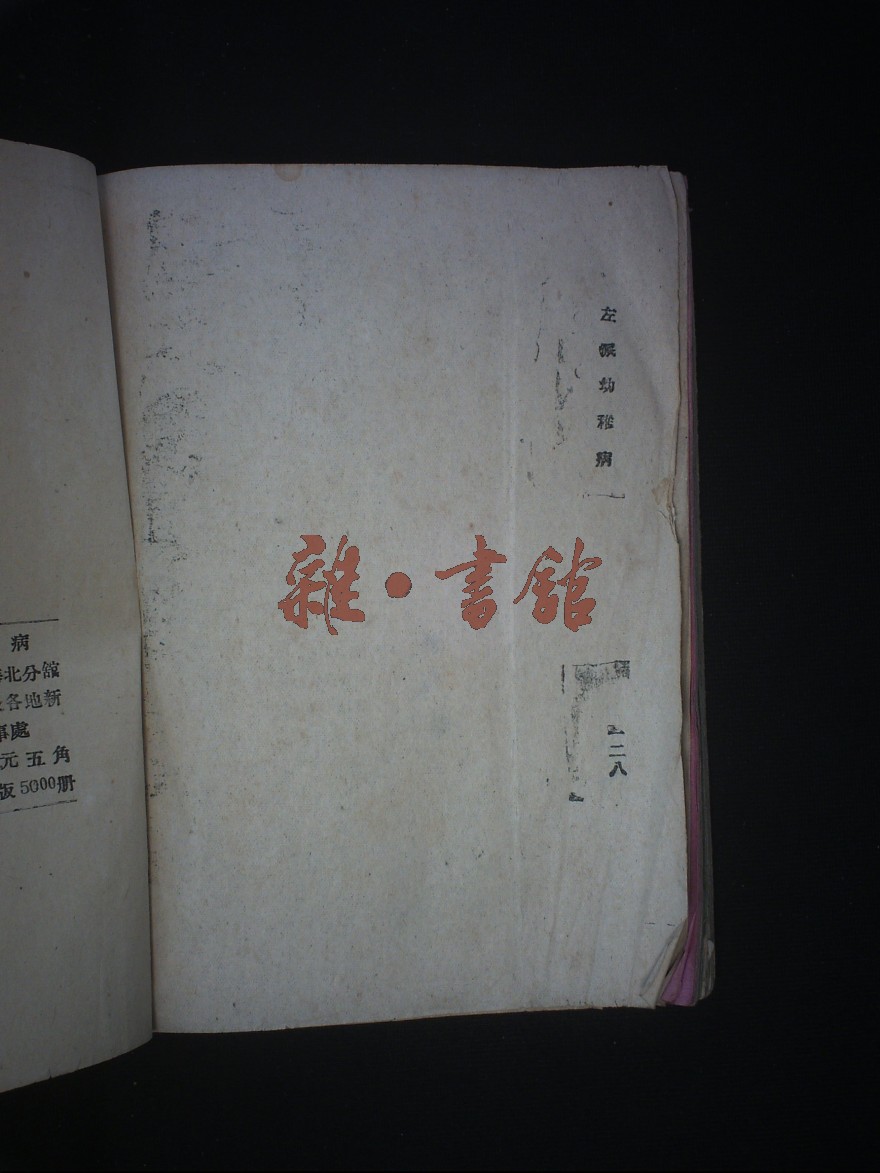 病
北分舘
各地新
處
元五角
版5000册
左派幼稚病
二八
雜·書舘